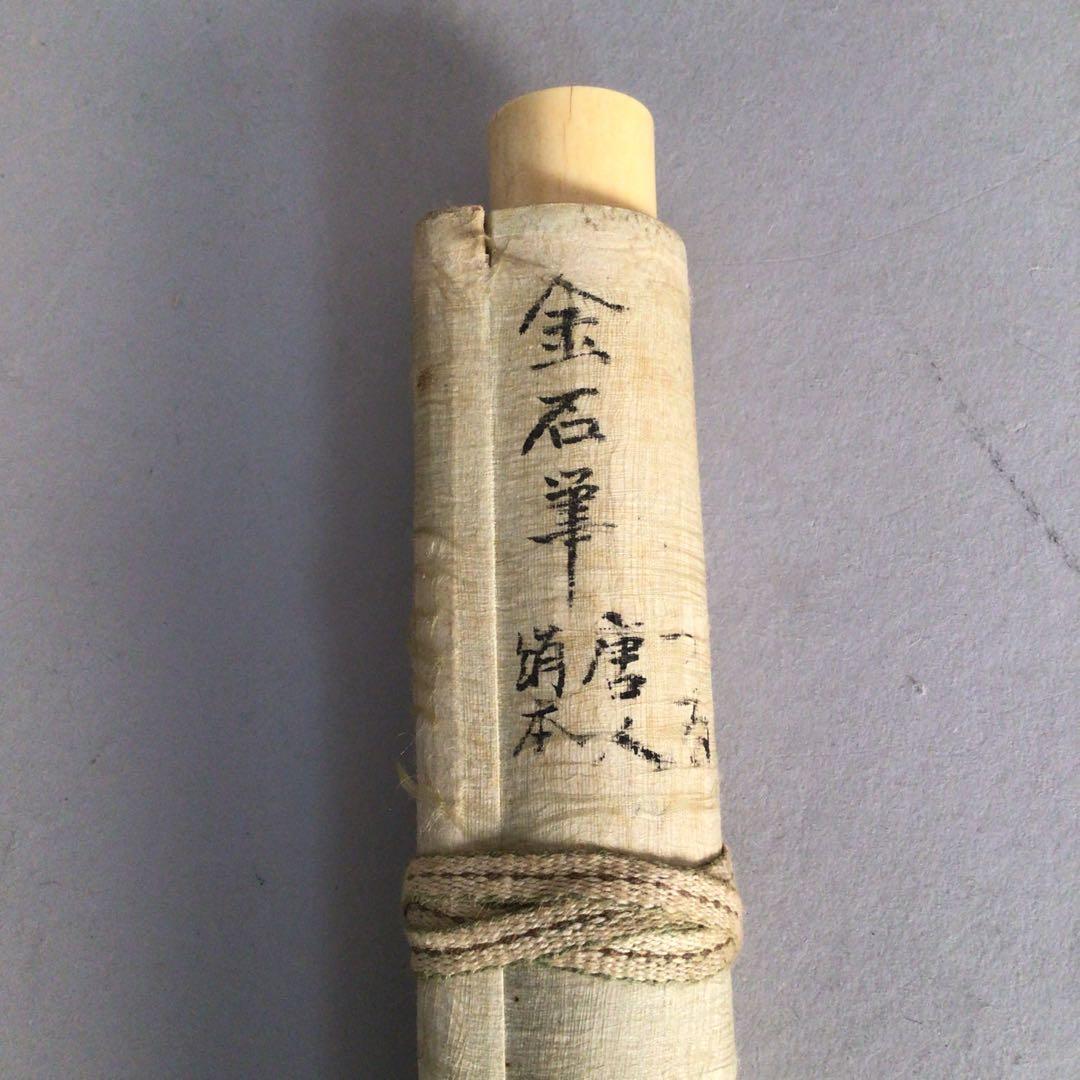 金石筆
唐人
絹本